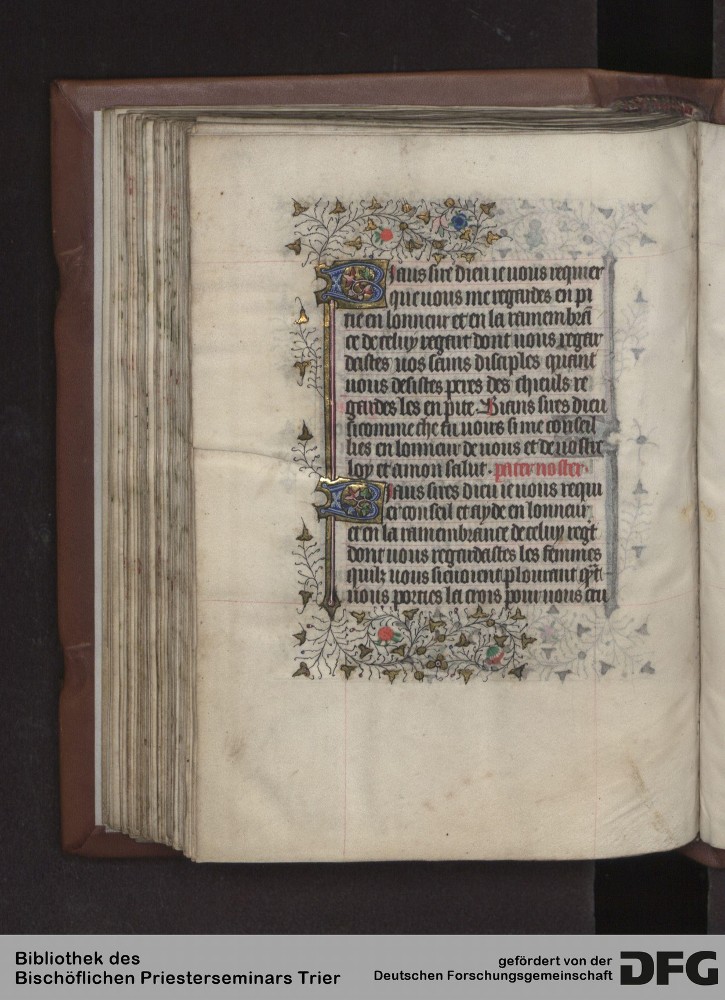 Biaus sire dieu ie uous requier
que uous me regardes en pi
tie en lonneur et en la ramembrā
ce de celuy regart dont uous regar
dastes uos sains disciples quant
uous desistes peres des chieuls re
gardes les en pite. Biaus sires dieu
si comme che fu uoirs si me conseil
lies en lonneur de uous et de uostre
loy et a mon salut. pater noster.
Biaus sires dieu ie uous requi
er conseil et ayde en lonneur
et en la ramembrance de celuy regt
dont uous regardastes les femmes
quilz uous sieuoient plourant qt
uous porties la crois pour nous cru
Bibliothek des
Bischöflichen Priesterseminars Trier
gefördert von der
Deutschen Forschungsgemeinschaft
DFG